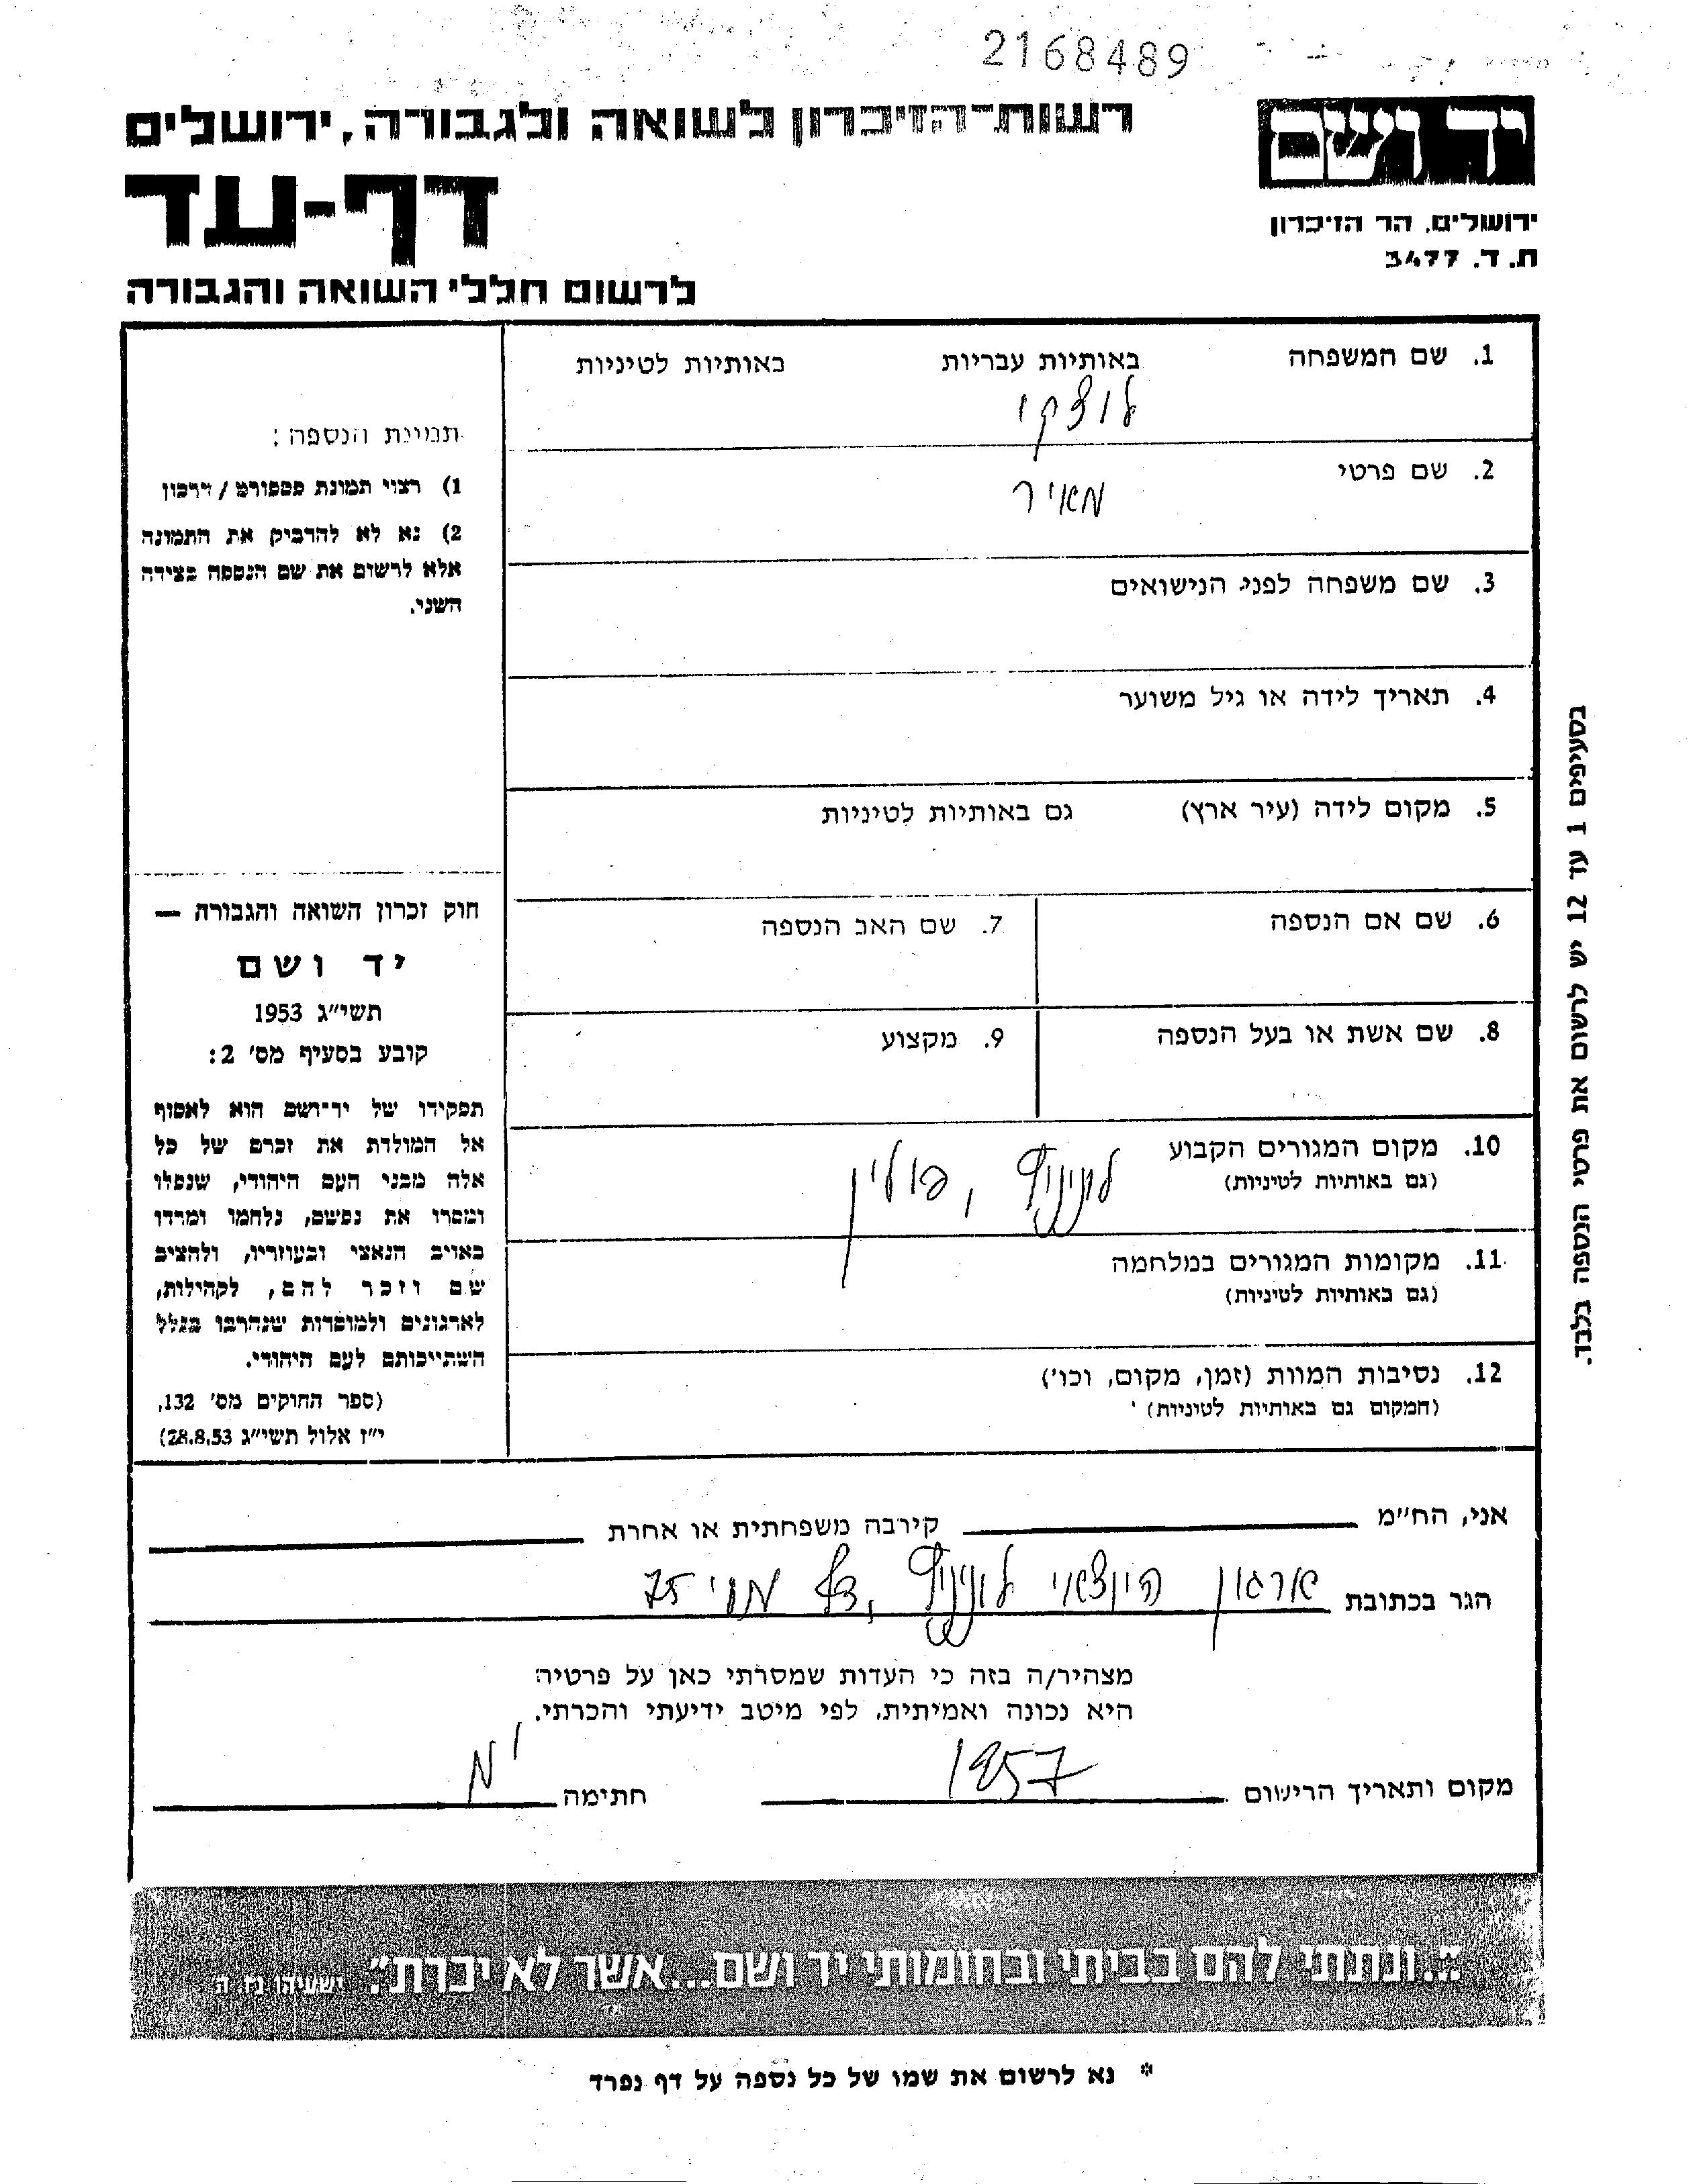 2168489
רשות־הזיכרון לשואה ולגבורה, ירושלים
יד ושם
דף-עד
ירושלים, הר הזיכרון
ת. ד. 3477
לרשום חללי השואה והגבורה
1. שם המשפחה באותיות עבריות באותיות לטיניות
לוצקי
2. שם פרטי
מאיר
3. שם משפחה לפני הנישואים
4. תאריך לידה או גיל משוער
5. מקום לידה (עיר ארץ) גם באותיות לטיניות
6. שם אם הנספה 7. שם האב הנספה
8. שם אשת או בעל הנספה 9. מקצוע
10. מקום המגורים הקבוע
(גם באותיות לטיניות)
, פולין
11. מקומות המגורים במלחמה
(גם באותיות לטיניות)
12. נסיבות המוות (זמן, מקום, וכו')
(המקום גם באותיות לטיניות)
תמונת הנספה:
1) רצוי תמונת פספורט / דרכון
2) נא לא להדביק את התמונה
אלא לרשום את שם הנספה בצידה
השני.
חוק זכרון השואה והגבורה —
יד ושם
תשי"ג 1953
קובע בסעיף מס' 2:
תפקידו של יד־ושם הוא לאסוף
אל המולדת את זכרם של כל
אלה מבני העם היהודי, שנפלו
ומסרו את נפשם, נלחמו ומרדו
באויב הנאצי ובעוזריו, ולהציב
שם וזכר להם, לקהילות,
לארגונים ולמוסדות שנחרבו בגלל
השתייכותם לעם היהודי.
(ספר החוקים מס' 132,
י"ז אלול תשי"ג 28.8.53)
בסעיפים 1 עד 12 יש לרשום את פרטי הנספה בלבד.
אני, הח"מ קירבה משפחתית או אחרת
הגר בכתובת ארגון היוצאי
מצהיר/ה בזה כי העדות שמסרתי כאן על פרטיה
היא נכונה ואמיתית, לפי מיטב ידיעתי והכרתי.
מקום ותאריך הרישום 1957 חתימה
"...ונתתי להם בביתי ובחומותי יד ושם...אשר לא יכרת". ישעיהו נו, ה
* נא לרשום את שמו של כל נספה על דף נפרד